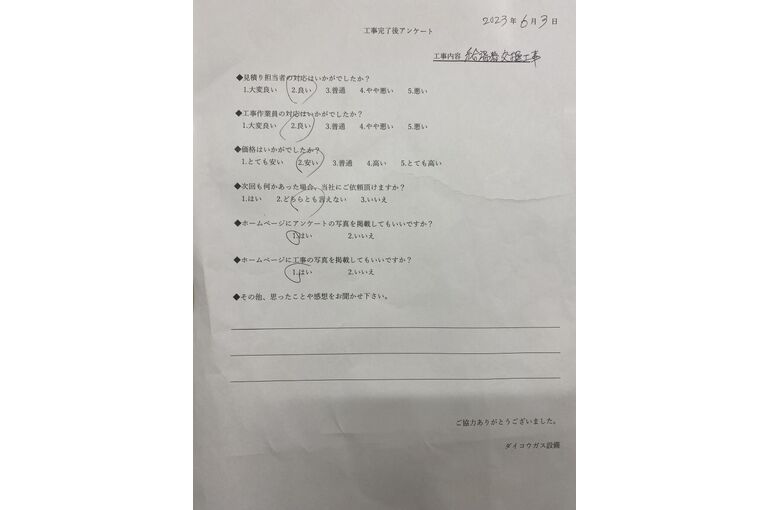 2023年6月3日
工事完了後アンケート
工事内容 給湯器交換工事
◆見積り担当者の対応はいかがでしたか？
1.大変良い 2.良い 3.普通 4.やや悪い 5.悪い
◆工事作業員の対応はいかがでしたか？
1.大変良い 2.良い 3.普通 4.やや悪い 5.悪い
◆価格はいかがでしたか？
1.とても安い 2.安い 3.普通 4.高い 5.とても高い
◆次回も何かあった場合、当社にご依頼頂けますか？
1.はい 2.どちらとも言えない 3.いいえ
◆ホームページにアンケートの写真を掲載してもいいですか？
1.はい 2.いいえ
◆ホームページに工事の写真を掲載してもいいですか？
1.はい 2.いいえ
◆その他、思ったことや感想をお聞かせ下さい。
ご協力ありがとうございました。
ダイコウガス設備